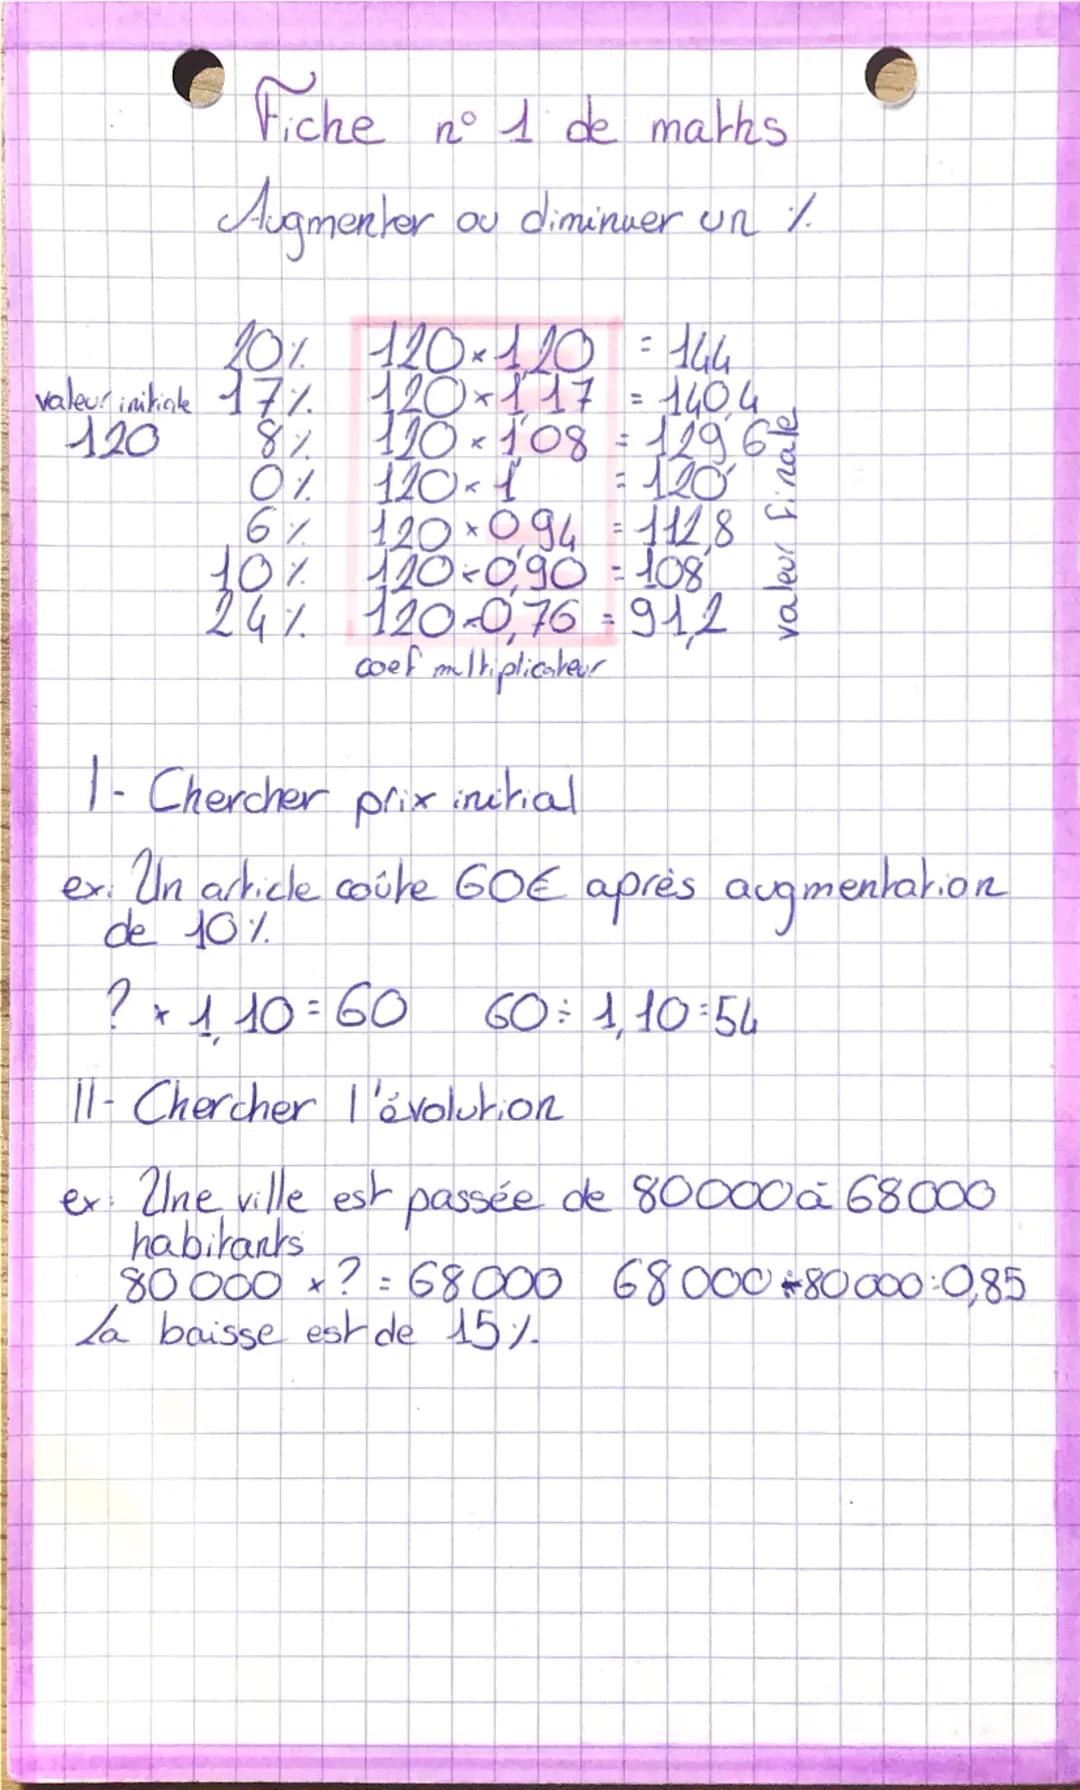 Fiche n° 1 de maths
Augmenter ou diminuer un %
20% 120×1,20 = 144
valeur initiale 17% 120×1,17 = 140,4
120 8% 120×1,08 = 129,6
0% 120×1 = 120
6% 120×0,94 = 112,8
10% 120×0,90 = 108
24% 120×0,76 = 91,2
valeur finale
coef multiplicateur
I- Chercher prix initial
ex: Un article coûte 60€ après augmentation
de 10%.
? × 1,10 = 60 60 ÷ 1,10 = 54
II- Chercher l'évolution
ex: Une ville est passée de 80000 à 68000
habitants
80 000 × ? = 68 000 68 000 ÷ 80 000 = 0,85
La baisse est de 15%.